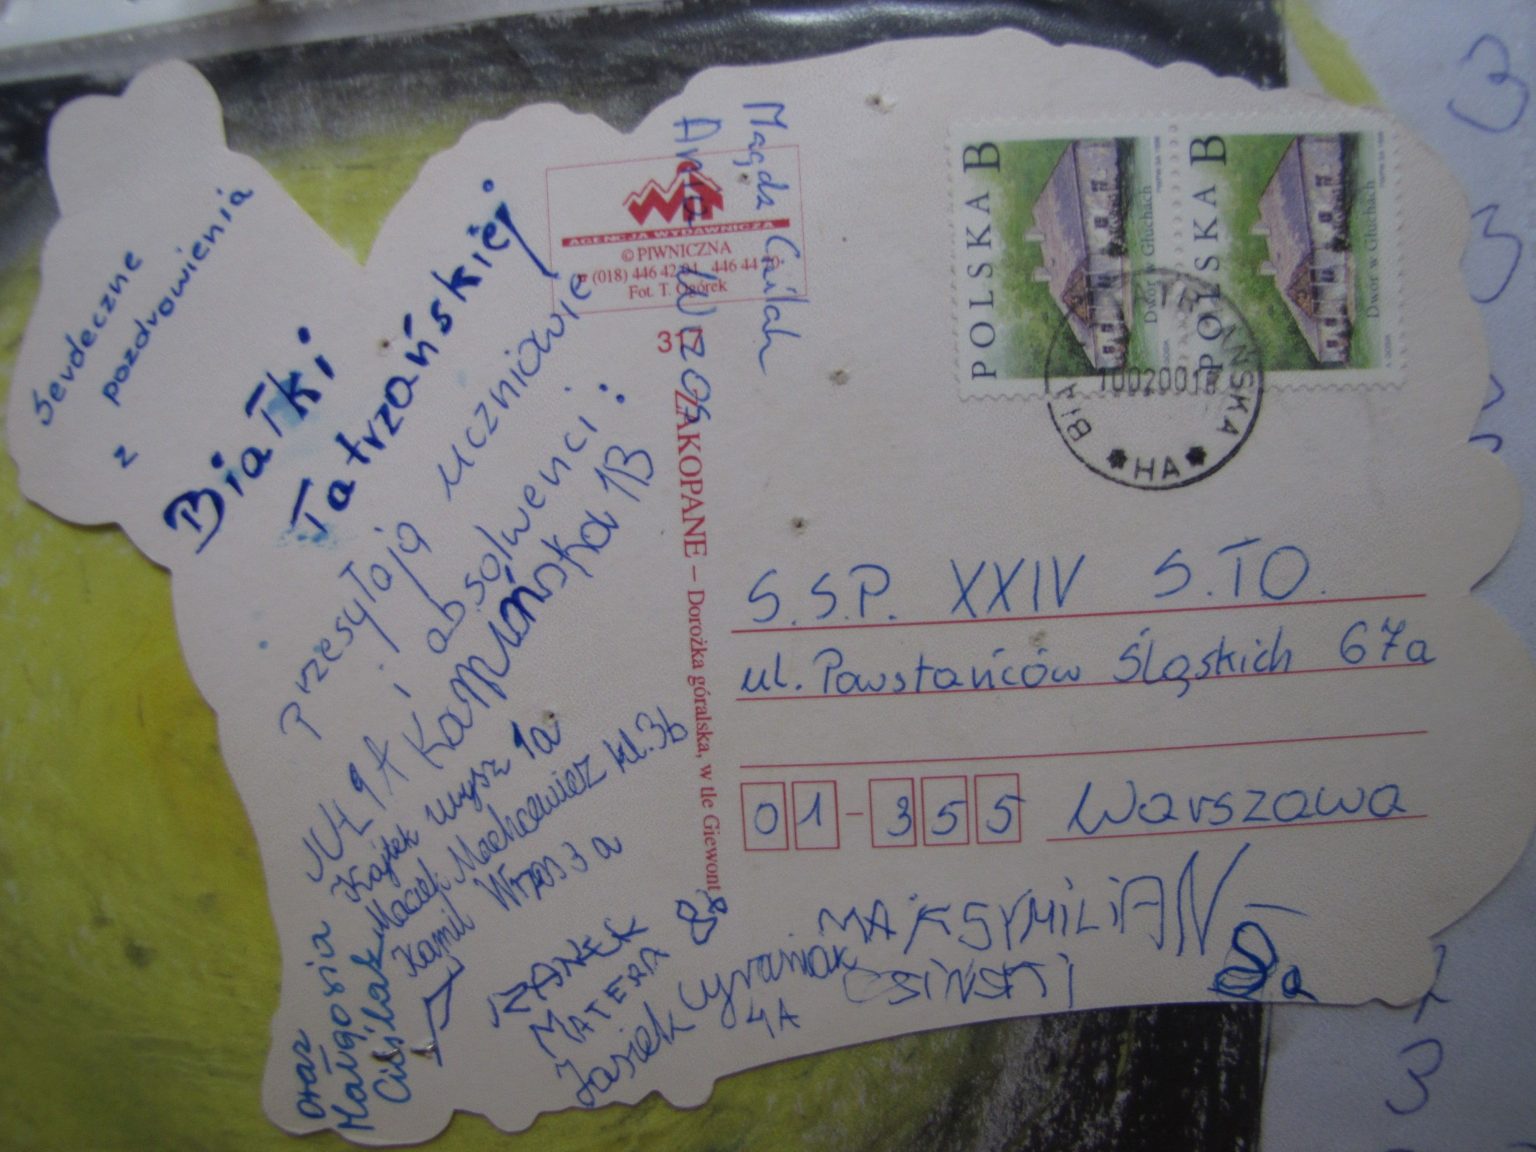 Serdeczne
pozdrowienia
z
Białki
Tatrzańskiej
Przesyłają uczniowie
i absolwenci:
Kamińska 1B
Kajtek 1a
Maciek Mackiewicz kl.3b
Kamil Wrzos 3a
oraz
Małgosia
JANEK
MATERA 8B
Jasiek Cyraniak
4A
MAKSYMILIAN
OSIŃSKI
8a
Magda
Anna Wrzos
AGENCJA WYDAWNICZA
© PIWNICZNA
(018) 446 42 01, 446 44 70
Fot. T. Ogórek
ZAKOPANE – Dorożka góralska, w tle Giewont
POLSKA B
Dwór w Głuchach
POLSKA B
Dwór w Głuchach
HA
S.S.P. XXIV S.TO.
ul. Powstańców Śląskich 67a
01-355 Warszawa
3
3
3